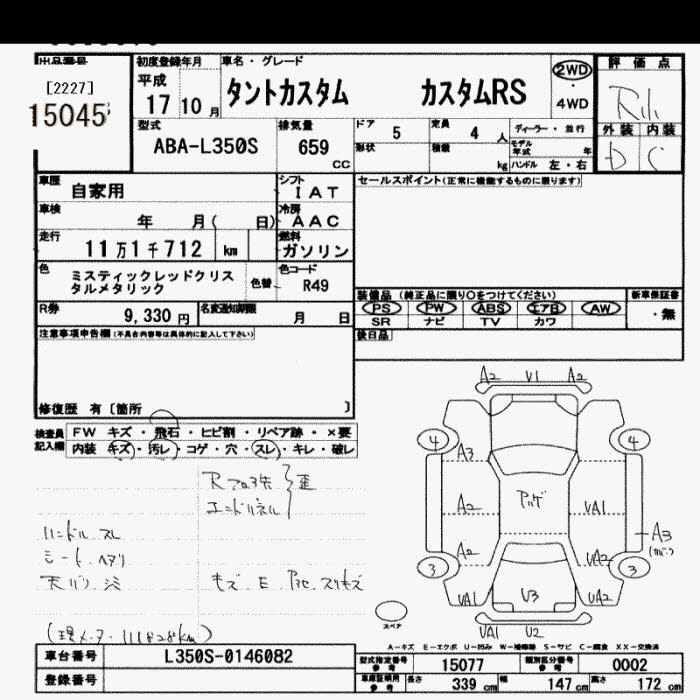 出品番号
[2227]
15045
初度登録年月
平成
17年 10月
車名・グレード
タントカスタム カスタムRS
2WD
・
4WD
評価点
外装 内装
D C
型式
ABA-L350S
排気量
659
CC
ドア 5
定員 4 人
ディーラー・並行
形状
積載 kg
モデル年式 年
ハンドル 左・右
車歴
自家用
シフト
IAT
車検
年 月( 日)
冷房
AAC
走行
11万1千712 km
燃料
ガソリン
色
ミスティックレッドクリスタルメタリック
色替
色コード
R49
R券
9,330 円
名変通知期限
月 日
セールスポイント(正常に機能するものに限ります)
装備品 (純正品に限り○をつけてください)
新車保証書
PS PW ABS エアB AW
・無
SR ナビ TV カワ
後日品
注意事項申告欄(不具合内容等は具体的に記入して下さい)
修復歴 有〔箇所 〕
検査員記入欄
FW キズ・飛石・ヒビ割・リペア跡・×要
内装 キズ・汚レ・コゲ・穴・スレ・キレ・破レ
エンドパネル
歪
ハンドル スレ
シート ヘタリ
(現メーター 111828km)
A2 V1 A2
4 4
A3
A2 UA1
A2 UA2
A3
3 3
UA1 U3 UA2
UA1 U2
スペア
A-キズ E-エクボ U-凹み W-補修跡 S-サビ C-腐食 XX-交換済
車台番号 L350S-0146082
登録番号
型式指定番号
参考
15077
類別区分番号
参考
0002
車庫証明用
参考
長さ 339 cm
幅 147 cm
高さ 172 cm